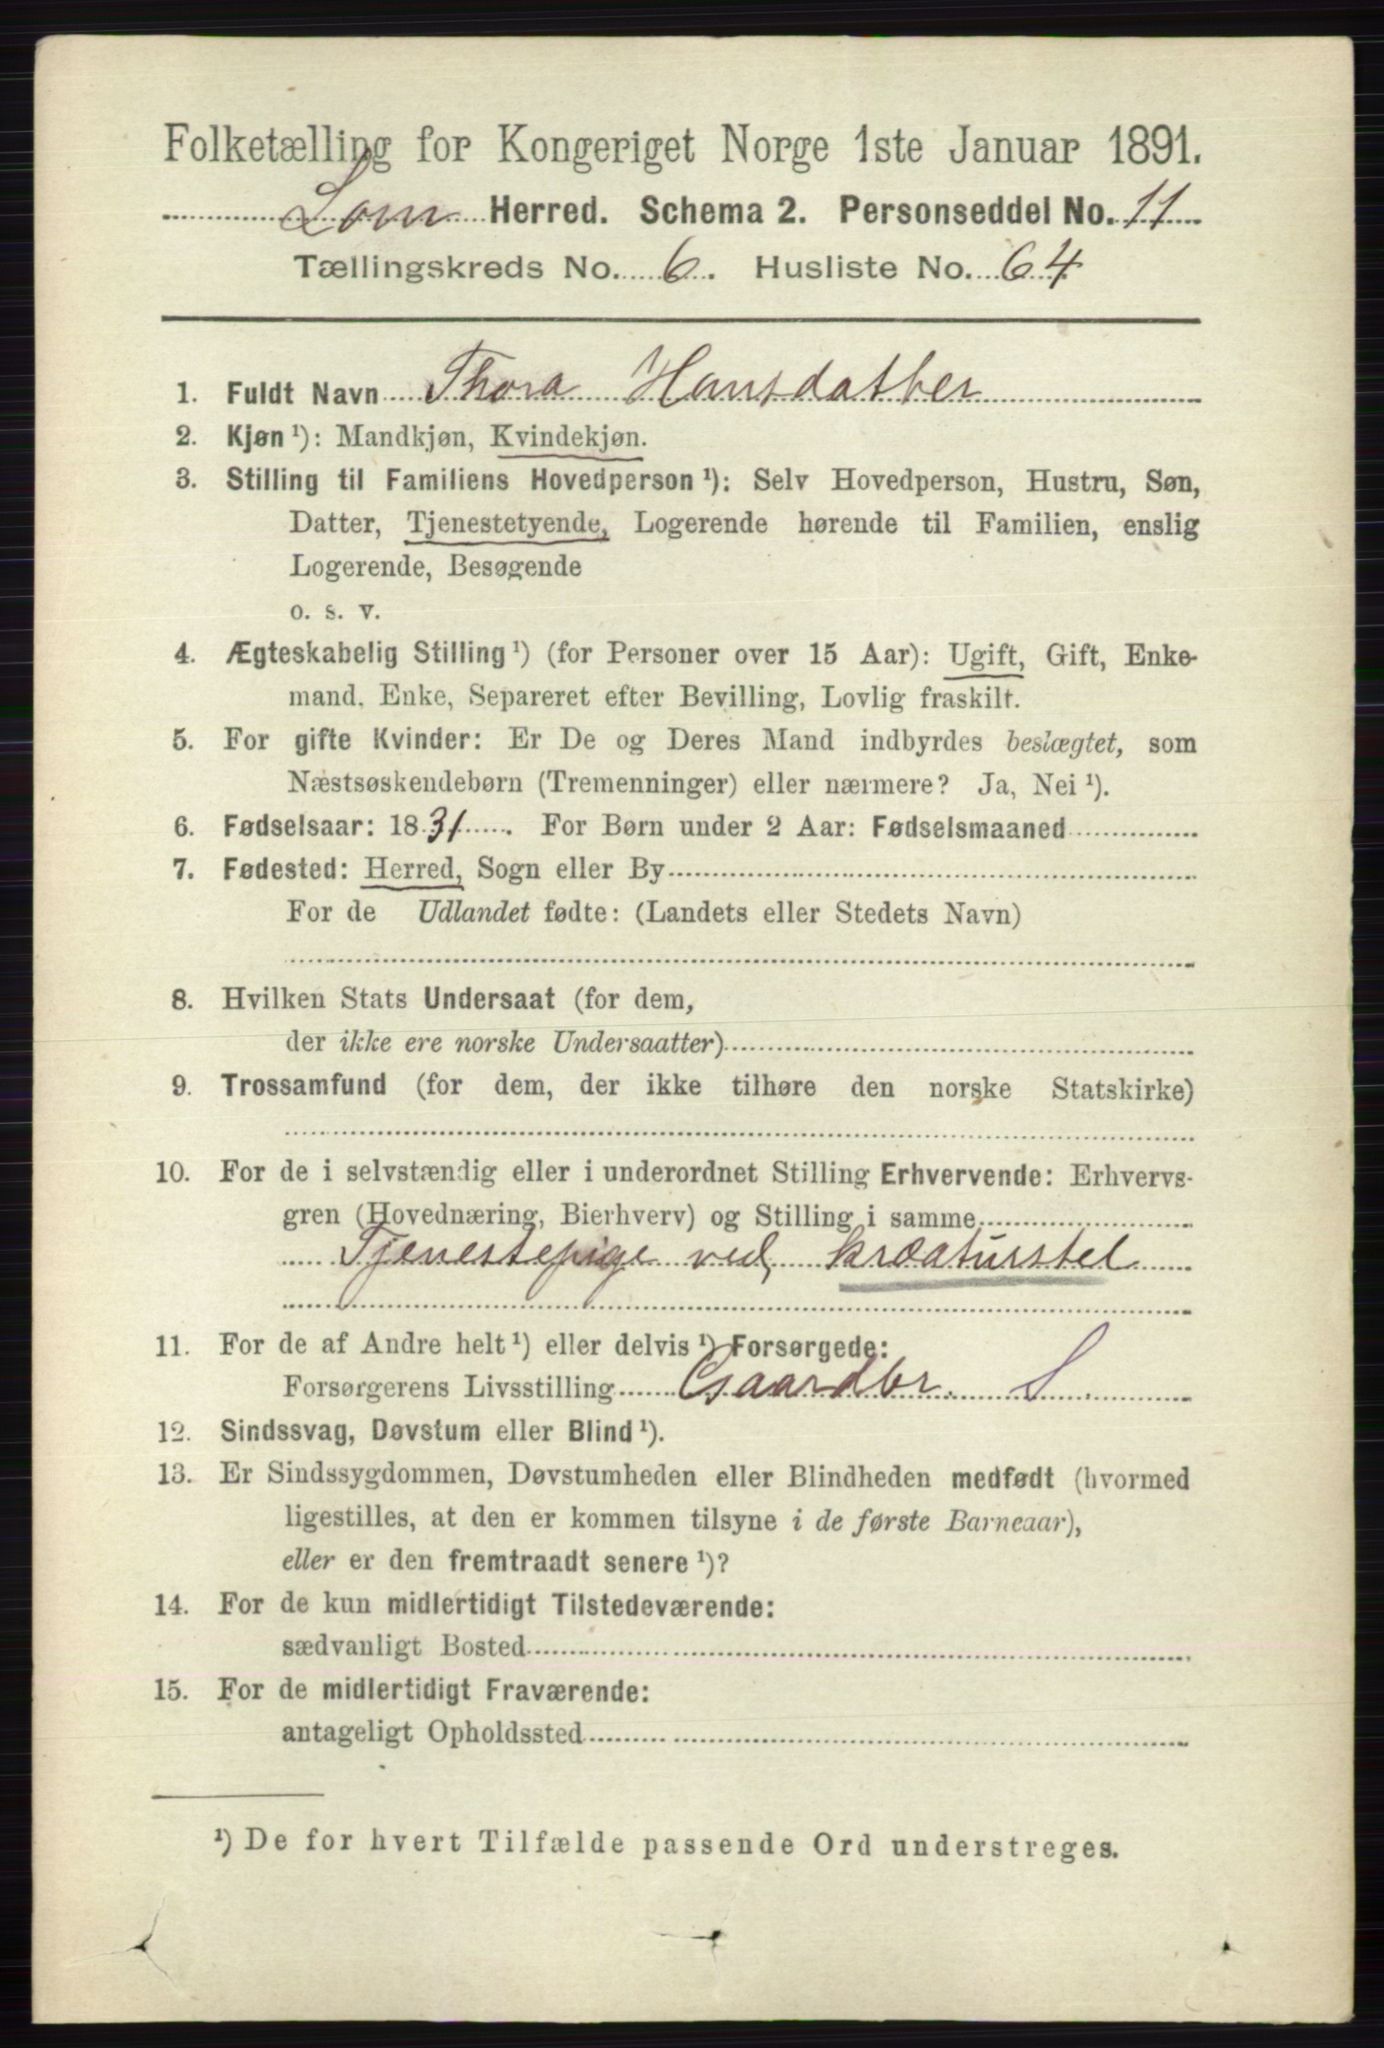 Folketælling for Kongeriget Norge 1ste Januar 1891.
Lom Herred. Schema 2. Personseddel No. 11
Tællingskreds No. 6. Husliste No. 64
1. Fuldt Navn Thora Hansdatter
2. Kjøn ¹): Mandkjøn, Kvindekjøn.
3. Stilling til Familiens Hovedperson ¹): Selv Hovedperson, Hustru, Søn,
Datter, Tjenestetyende, Logerende hørende til Familien, enslig
Logerende, Besøgende
o. s. v.
4. Ægteskabelig Stilling ¹) (for Personer over 15 Aar): Ugift, Gift, Enke-
mand, Enke, Separeret efter Bevilling, Lovlig fraskilt.
5. For gifte Kvinder: Er De og Deres Mand indbyrdes beslægtet, som
Næstsøskendebørn (Tremenninger) eller nærmere? Ja, Nei ¹).
6. Fødselsaar: 1831. For Børn under 2 Aar: Fødselsmaaned
7. Fødested: Herred, Sogn eller By
For de Udlandet fødte: (Landets eller Stedets Navn)
8. Hvilken Stats Undersaat (for dem,
der ikke ere norske Undersaatter)
9. Trossamfund (for dem, der ikke tilhøre den norske Statskirke)
10. For de i selvstændig eller i underordnet Stilling Erhvervende: Erhvervs-
gren (Hovednæring, Bierhverv) og Stilling i samme
Tjenestepige ved kræaturstel
11. For de af Andre helt ¹) eller delvis ¹) Forsørgede:
Forsørgerens Livsstilling Gaardbr. S.
12. Sindssvag, Døvstum eller Blind ¹).
13. Er Sindssygdommen, Døvstumheden eller Blindheden medfødt (hvormed
ligestilles, at den er kommen tilsyne i de første Barneaar),
eller er den fremtraadt senere ¹)?
14. For de kun midlertidigt Tilstedeværende:
sædvanligt Bosted
15. For de midlertidigt Fraværende:
antageligt Opholdssted
¹) De for hvert Tilfælde passende Ord understreges.